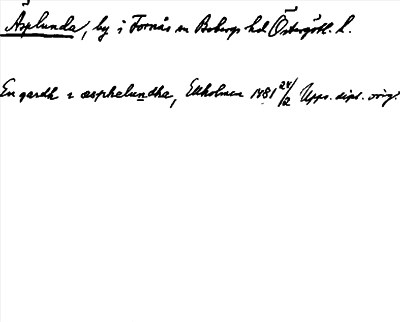 Äsplunda, by i Fornås sn Bobergs hd Östergötl. l.
En gardh i æsphelundha, Ekholmen 1481 24/2 Upps. dipl. orig.